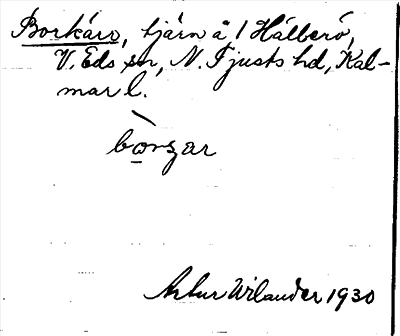 Borkáro, tjärn å 1 Hälberö,
V. Eds sn, N. Tjusts hd, Kal-
mar l.
Artur Wilander 1930